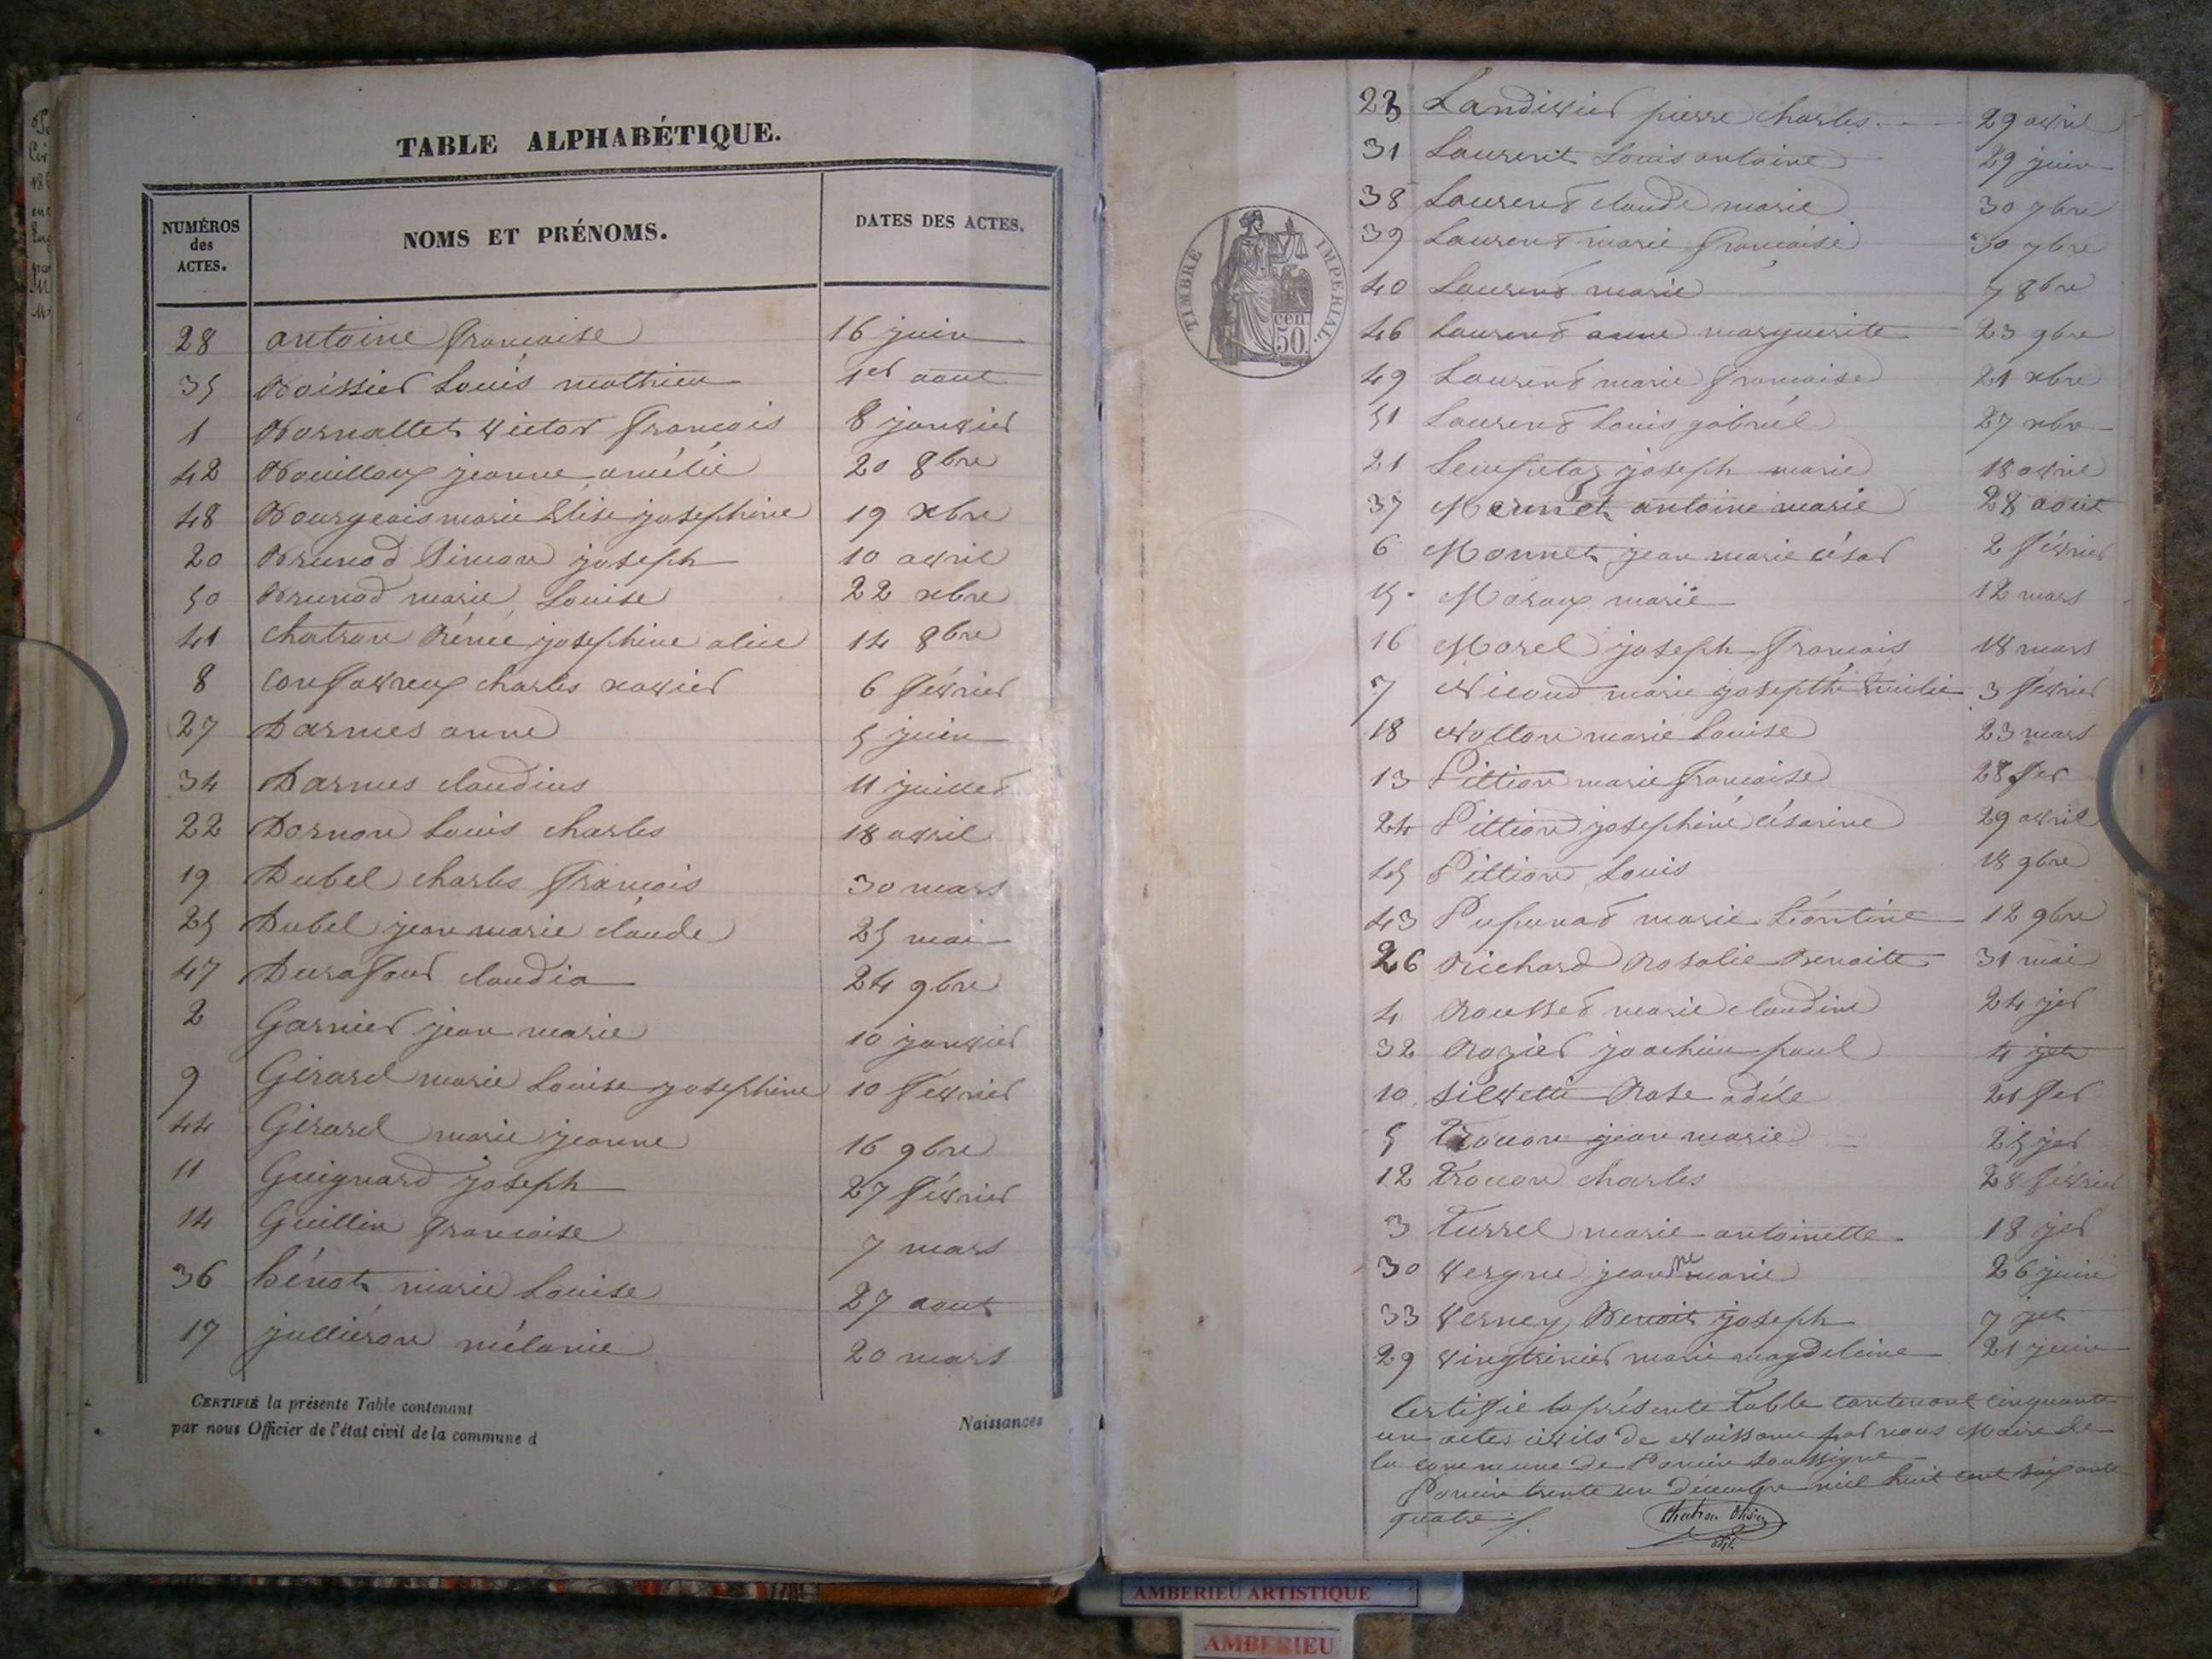 TABLE ALPHABÉTIQUE.
NUMÉROS des ACTES. NOMS ET PRÉNOMS. DATES DES ACTES.
28 antoine francoise 16 juin
35 Boissier Louis mathieu 1er aout
1 Bornallet victor françois 8 janvier
42 Bouilloux jeanne amélie 20 8bre
48 Bourgeois marie Elise josephine 19 xbre
20 Brunod Simon joseph 10 avril
50 Brunod marie Louise 22 xbre
41 Chatron Rénée josephine alice 14 8bre
8 Confavreux charles xavier 6 février
27 Darmes anne 5 juin
34 Darmes claudius 11 juillet
22 Dornon Louis charles 18 avril
19 Dubel charles françois 30 mars
25 Dubel jean marie claude 25 mai
47 Durafour claudia 24 9bre
2 Garnier jean marie 10 janvier
9 Gérard marie Louise josephine 10 février
44 Gérard marie jeanne 16 9bre
11 Guignard joseph 27 février
14 Guillin francoise 7 mars
36 hénot marie Louise 27 aout
17 jullieron mélanie 20 mars
CERTIFIÉ la présente Table contenant
par nous Officier de l'état civil de la commune d
Naissances
TIMBRE IMPÉRIAL.
50 cen.
23 Landivier pierre charles 29 avril
31 Laurent Louis antoine 29 juin
38 Laurent claude marie 30 7bre
39 Laurent marie francoise 30 7bre
40 Laurent marie 7 8bre
46 Laurent anne marguerite 23 9bre
49 Laurent marie francoise 21 xbre
51 Laurent Louis gabriel 27 xbre
21 joseph marie 18 avril
37 antoine marie 28 aout
6 Monnet jean marie césar 2 février
15 Moraux marie 12 mars
16 Morel joseph françois 18 mars
7 Nicoud marie josepthe Emilie 3 février
18 Nollon marie Louise 23 mars
13 Pittion marie francoise 28 fer
24 Pittion josephine césarine 29 avril
45 Pittion Louis 18 9bre
43 Pupunat marie Léontine 12 9bre
26 Richard Rosalie Benoite 31 mai
4 Rousset marie claudine 24 jer
32 Rozier joachim paul 4 jet
10 Silvetti Rose adéle 21 fer
5 Trouon jean marie 25 jer
12 Trouon charles 28 février
3 Tussel marie antoinette 18 jer
30 Vergne jeanne marie 26 juin
33 Verney Benoit joseph 7 jet
29 Vingtrinier marie magdeleine 21 juin
Certifie la présente Table contenant cinquante
un actes civils de Naissance par nous Maire de
la commune de Poncin Soussigné
Poncin trente un décembre mil huit cent soixante
quatre
AMBERIEU ARTISTIQUE
AMBERIEU